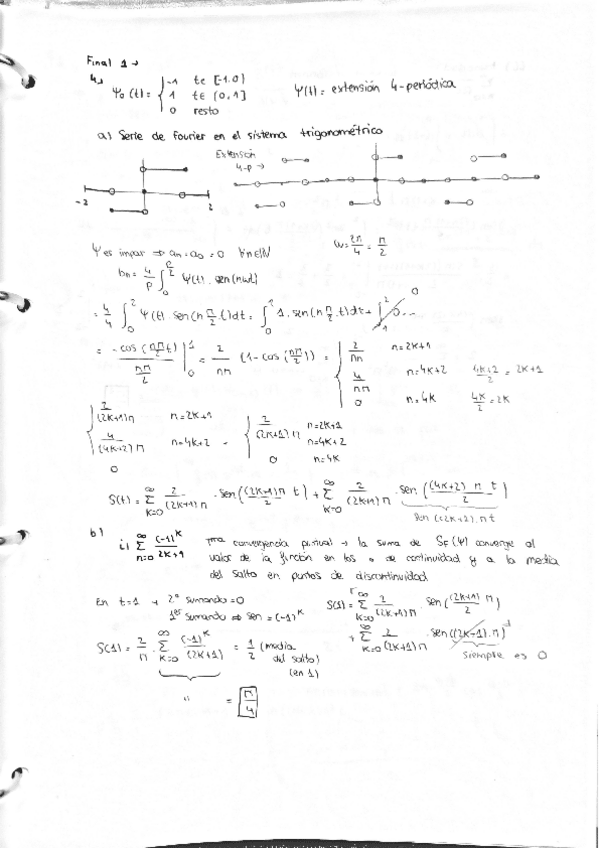 Final 1 →
4.
Ψ₀(t) = { -1 t∈ [-1,0)
1 t∈ (0,1]
0 resto
Ψ(t) = extensión 4-periódica
a) Serie de fourier en el sistema trigonométrico
Extensión
4-p →
-2 2
Ψ es impar ⇒ an = a0 = 0 ∀n∈ℕ
W = 2π/4 = π/2
bn = 4/p ∫₀^{p/2} Ψ(t) · sen(nωt)
= 4/4 ∫₀² Ψ(t) · sen(n π/2 t)dt = ∫₀¹ 1 · sen(n π/2 · t)dt + ∫₁² 0...
0
= -cos(nπ/2 t) / (nπ/2) |₀¹ = 2/nπ (1 - cos(nπ/2)) = { 2/nπ n = 2k+1
4/nπ n = 4k+2 (4k+2)/2 = 2k+1
0 n = 4k 4k/2 = 2k
{ 2/(2k+1)π n = 2k+1
4/(4k+2)π n = 4k+2
0
{ 2/(2k+1)π n = 2k+1
n = 4k+2
0 n = 4k
S(t) = Σ_{k=0}^∞ 2/(2k+1)π · sen((2k+1)π/2 t) + Σ_{k=0}^∞ 2/(2k+1)π · sen((4k+2)π t/2)
sen((2k+1)·πt
b)
i) Σ_{n=0}^∞ (-1)^k/(2k+1) convergencia puntual → la suma de SF(Ψ) converge al
valor de la función en los de continuidad y a la media
del salto en puntos de discontinuidad
En t=1 → 2º sumando = 0
1er sumando ⇒ sen = (-1)^k
S(1) = Σ_{k=0}^∞ 2/(2k+1)π sen((2k+1)π/2)
+ Σ_{k=0}^∞ 2/(2k+1)π · sen((2k+1)·π)
siempre es 0
S(1) = 2/π · Σ_{k=0}^∞ (-1)^k/(2k+1) = 1/2 (media
del salto)
(en 1)
" = π/4